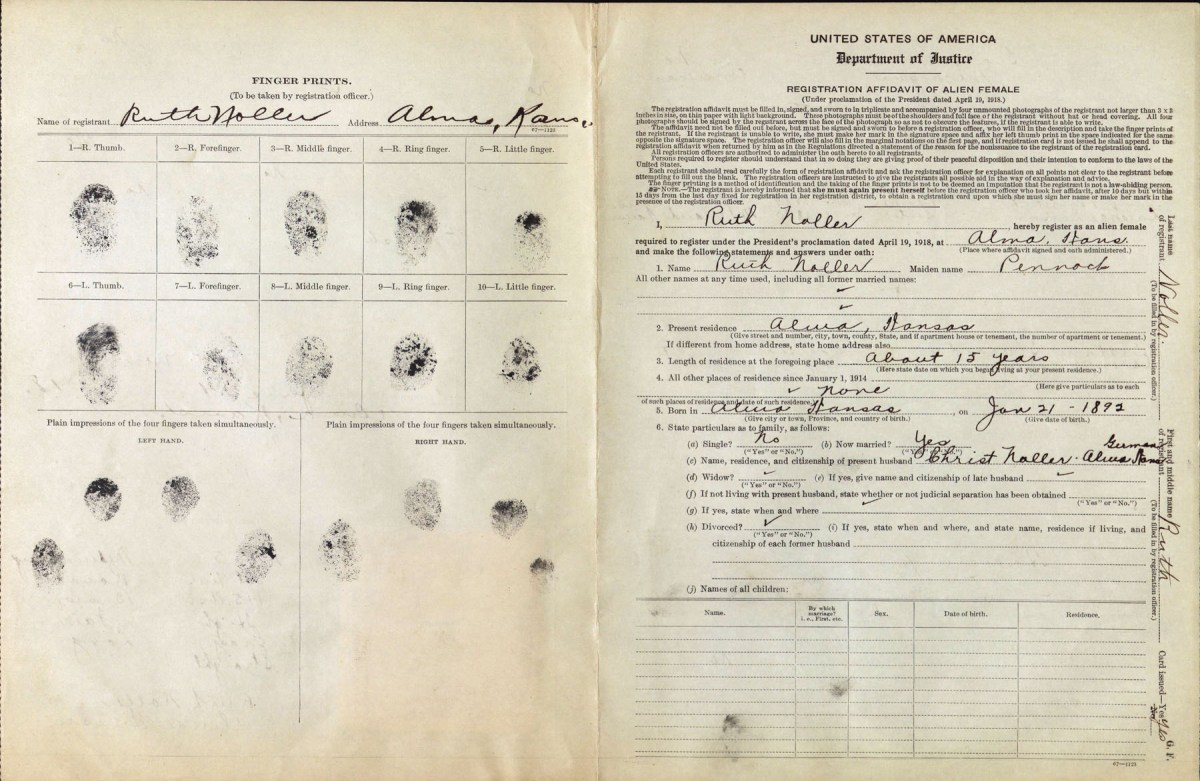 FINGER PRINTS.
(To be taken by registration officer.)
Name of registrant Ruth Noller Address Alma, Kans.
67—1123
1—R. Thumb. 2—R. Forefinger. 3—R. Middle finger. 4—R. Ring finger. 5—R. Little finger.
6—L. Thumb. 7—L. Forefinger. 8—L. Middle finger. 9—L. Ring finger. 10—L. Little finger.
Plain impressions of the four fingers taken simultaneously. Plain impressions of the four fingers taken simultaneously.
LEFT HAND. RIGHT HAND.
UNITED STATES OF AMERICA
Department of Justice
REGISTRATION AFFIDAVIT OF ALIEN FEMALE
(Under proclamation of the President dated April 19, 1918.)
The registration affidavit must be filled in, signed, and sworn to in triplicate and accompanied by four unmounted photographs of the registrant not larger than 3 x 3
inches in size, on thin paper with light background. These photographs must be of the shoulders and full face of the registrant without hat or head covering. All four
photographs should be signed by the registrant across the face of the photograph so as not to obscure the features, if the registrant is able to write.
The affidavit need not be filled out before, but must be signed and sworn to before a registration officer, who will fill in the description and take the finger prints of
the registrant. If the registrant is unable to write, she must make her mark in the signature space and affix her left thumb print in the space indicated for the same
opposite the signature space. The registration officer will also fill in the marginal notations on the first page, and if registration card is not issued he shall append to the
registration affidavit when returned by him as in the Regulations directed a statement of the reason for the nonissuance to the registrant of the registration card.
All registration officers are authorized to administer the oath hereto to all registrants.
Persons required to register should understand that in so doing they are giving proof of their peaceful disposition and their intention to conform to the laws of the
United States.
Each registrant should read carefully the form of registration affidavit and ask the registration officer for explanation on all points not clear to the registrant before
attempting to fill out the blank. The registration officers are instructed to give the registrants all possible aid in the way of explanation and advice.
The finger printing is a method of identification and the taking of the finger prints is not to be deemed an imputation that the registrant is not a law-abiding person.
NOTE.—The registrant is hereby informed that she must again present herself before the registration officer who took her affidavit, after 10 days but within
15 days from the last day fixed for registration in her registration district, to obtain a registration card upon which she must sign her name or make her mark in the
presence of the registration officer.
I, Ruth Noller, hereby register as an alien female
required to register under the President's proclamation dated April 19, 1918, at Alma, Kans.
(Place where affidavit signed and oath administered.)
and make the following statements and answers under oath:
1. Name Ruth Noller Maiden name Pennock
All other names at any time used, including all former married names:
2. Present residence Alma, Kansas
(Give street and number, city, town, county, State, and if apartment house or tenement, the number of apartment or tenement.)
If different from home address, state home address also
3. Length of residence at the foregoing place About 15 years
(Here state date on which you began living at your present residence.)
4. All other places of residence since January 1, 1914
(Here give particulars as to each
none
of such places of residence and date of such residence.)
5. Born in Alma Kansas, on Jan 21 - 1892
(Give city or town, Province, and country of birth.) (Give date of birth.)
6. State particulars as to family, as follows:
(a) Single? No (b) Now married? Yes
("Yes" or "No.") ("Yes" or "No.")
German
(c) Name, residence, and citizenship of present husband Christ Noller - Alma Kans
(d) Widow? (e) If yes, give name and citizenship of late husband
("Yes" or "No.")
(f) If not living with present husband, state whether or not judicial separation has been obtained
("Yes" or "No.")
(g) If yes, state when and where
(h) Divorced? (i) If yes, state when and where, and state name, residence if living, and
("Yes" or "No.")
citizenship of each former husband
(j) Names of all children:
Name. By which marriage? i. e., First, etc. Sex. Date of birth. Residence.
67—1123
Last name of registrant Noller
(To be filled in by registration officer.)
First and middle name of registrant Ruth
(To be filled in by registration officer.)
Card issued—Yes G. F.